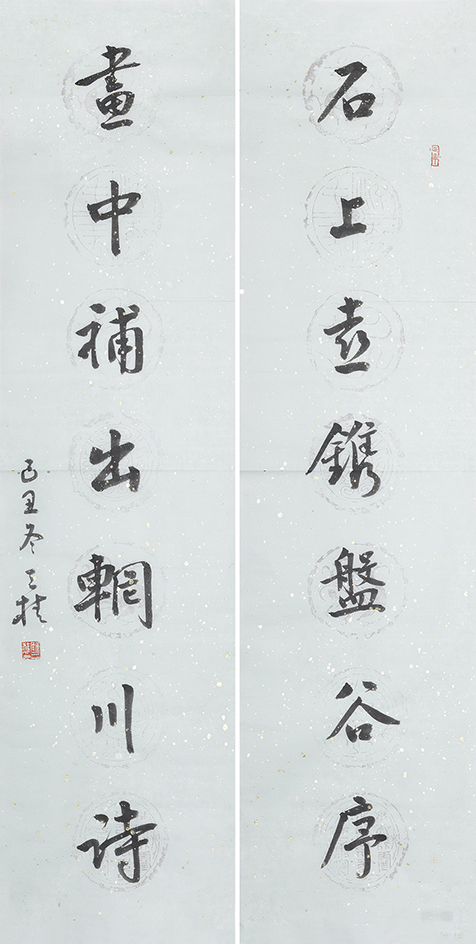 石上鐫盤谷序
畫中補出輞川詩
己丑冬